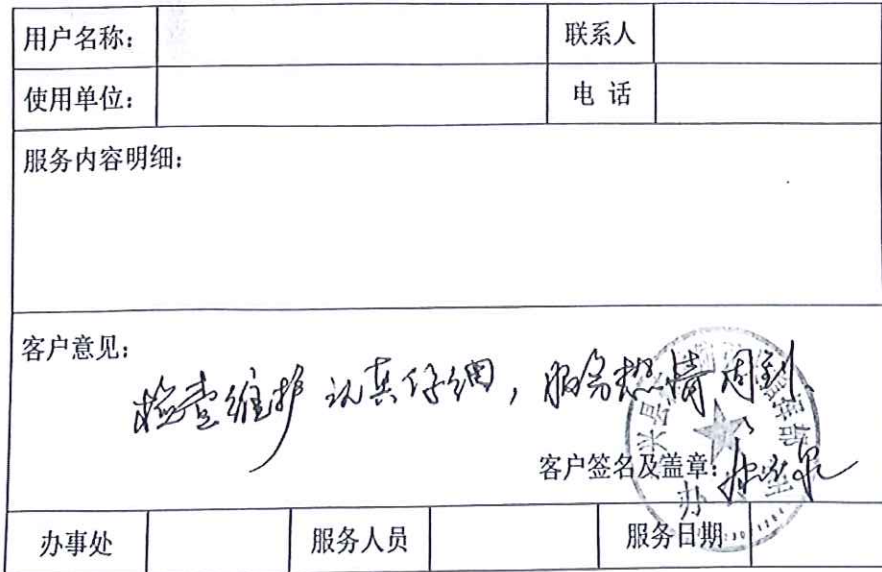 用户名称： 联系人
使用单位： 电 话
服务内容明细：
客户意见：
检查维护认真仔细，服务热情周到
客户签名及盖章：
办事处 服务人员 服务日期